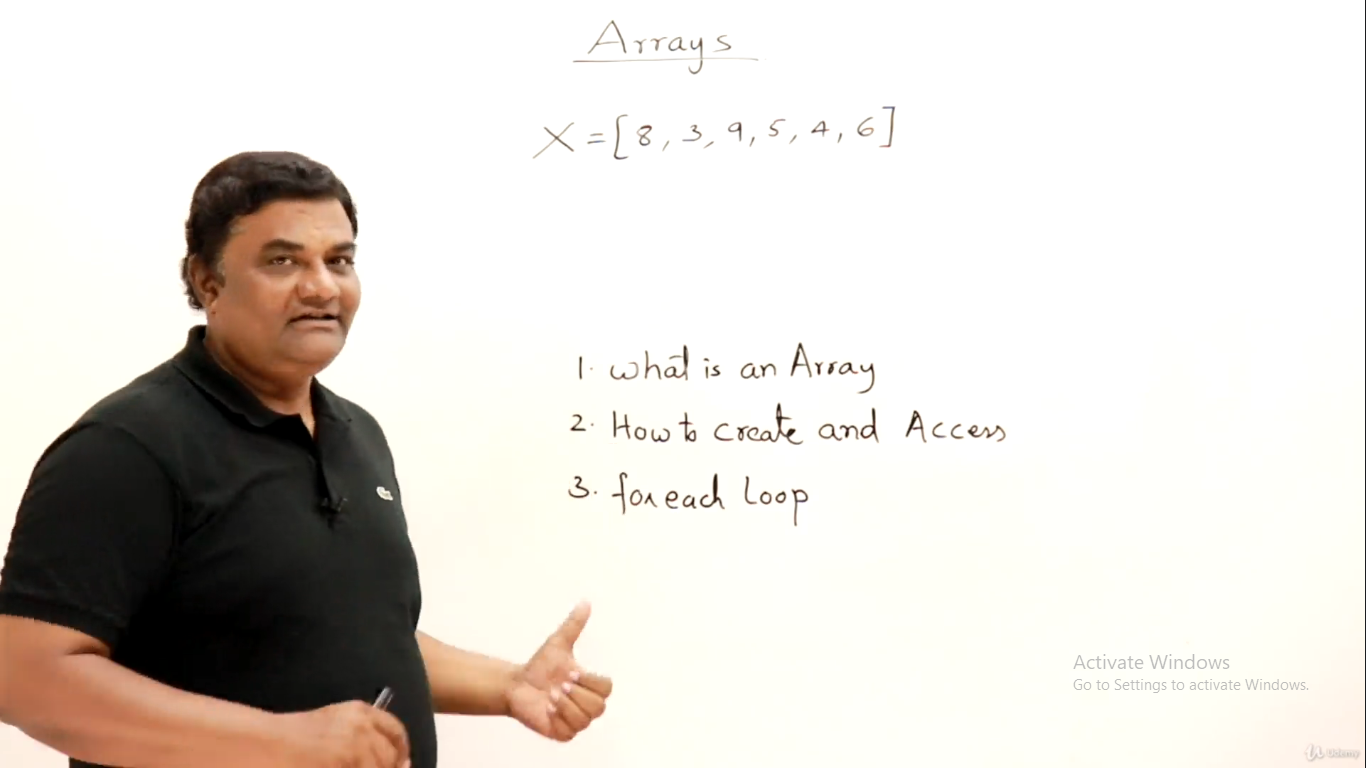 Arrays
X = [8, 3, 9, 5, 4, 6]
1. what is an Array
2. How to create and Access
3. foreach Loop
Activate Windows
Go to Settings to activate Windows.
Udemy